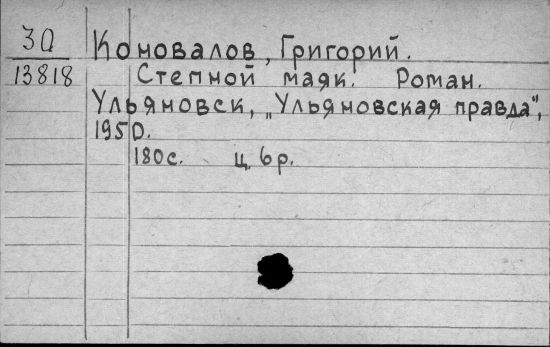 30
13818
Коновалов, Григорий.
Степной маяк. Роман.
Ульяновск, „Ульяновская правда",
1950.
180с. ц. 6р.